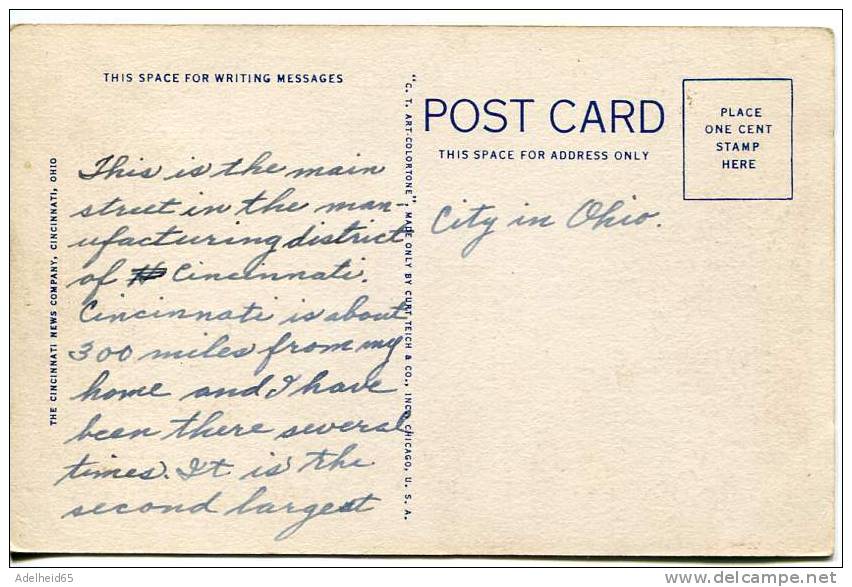 THIS SPACE FOR WRITING MESSAGES
This is the main
street in the man-
ufacturing district
of Cincinnati.
Cincinnati is about
300 miles from my
home and I have
been there several
times. It is the
second largest
City in Ohio.
THE CINCINNATI NEWS COMPANY, CINCINNATI, OHIO
"C. T. ART-COLORTONE" MADE ONLY BY CURT TEICH & CO., INC., CHICAGO, U. S. A.
POST CARD
THIS SPACE FOR ADDRESS ONLY
PLACE
ONE CENT
STAMP
HERE
Adelheid65
delcampe.net